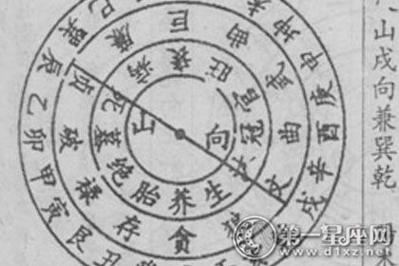 山戌向兼巽乾
巳 巽 辰 乙 卯 甲 寅 艮 丑
坤 申 庚 酉 辛 戌
廉 巨 武 曲
破 禄 存 贪
文 曲
病 旺 官 冠
死 墓 绝 胎 养 生
山 向
第一星座网
www.d1xz.net